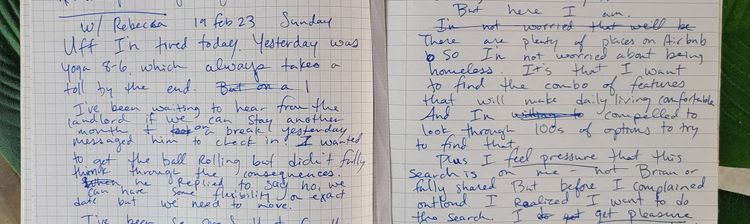 w/ Rebecca 19 feb 23 Sunday
Uff I'm tired today. Yesterday was
yoga 8-6, which always takes a
toll by the end. But on a
I've been waiting to hear from the
landlord if we can stay another
month & on a break yesterday
messaged him to check in. I wanted
to get the ball rolling but didn't fully
think through the consequences.
When he replied to say no, we
can have some flexibility on exact
date but we need to move.
I've been so
But here I am.
I'm not worried that we'll be
There are plenty of places on Airbnb
so I'm not worried about being
homeless. It's that I want
to find the combo of features
that will make daily living comfortable
And I'm compelled to
look through 100s of options to try
to find that.
Plus I feel pressure that this
search is on me - not Brian or
fully shared But before I complained
outloud I realized I want to do
the search. I get pleasure